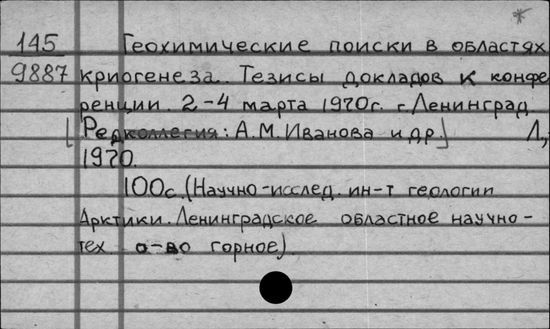 145 Геохимические поиски в областях
9887 криогенеза. Тезисы докладов к конфе
ренции. 2-4 марта 1970г. г.Ленинград
[Редколлегия: А.М.Иванова и др.] Л.,
1970.
100с.(Научно-исслед. ин-т геологии
Арктики. Ленинградское областное научно-
тех. о-во горное)